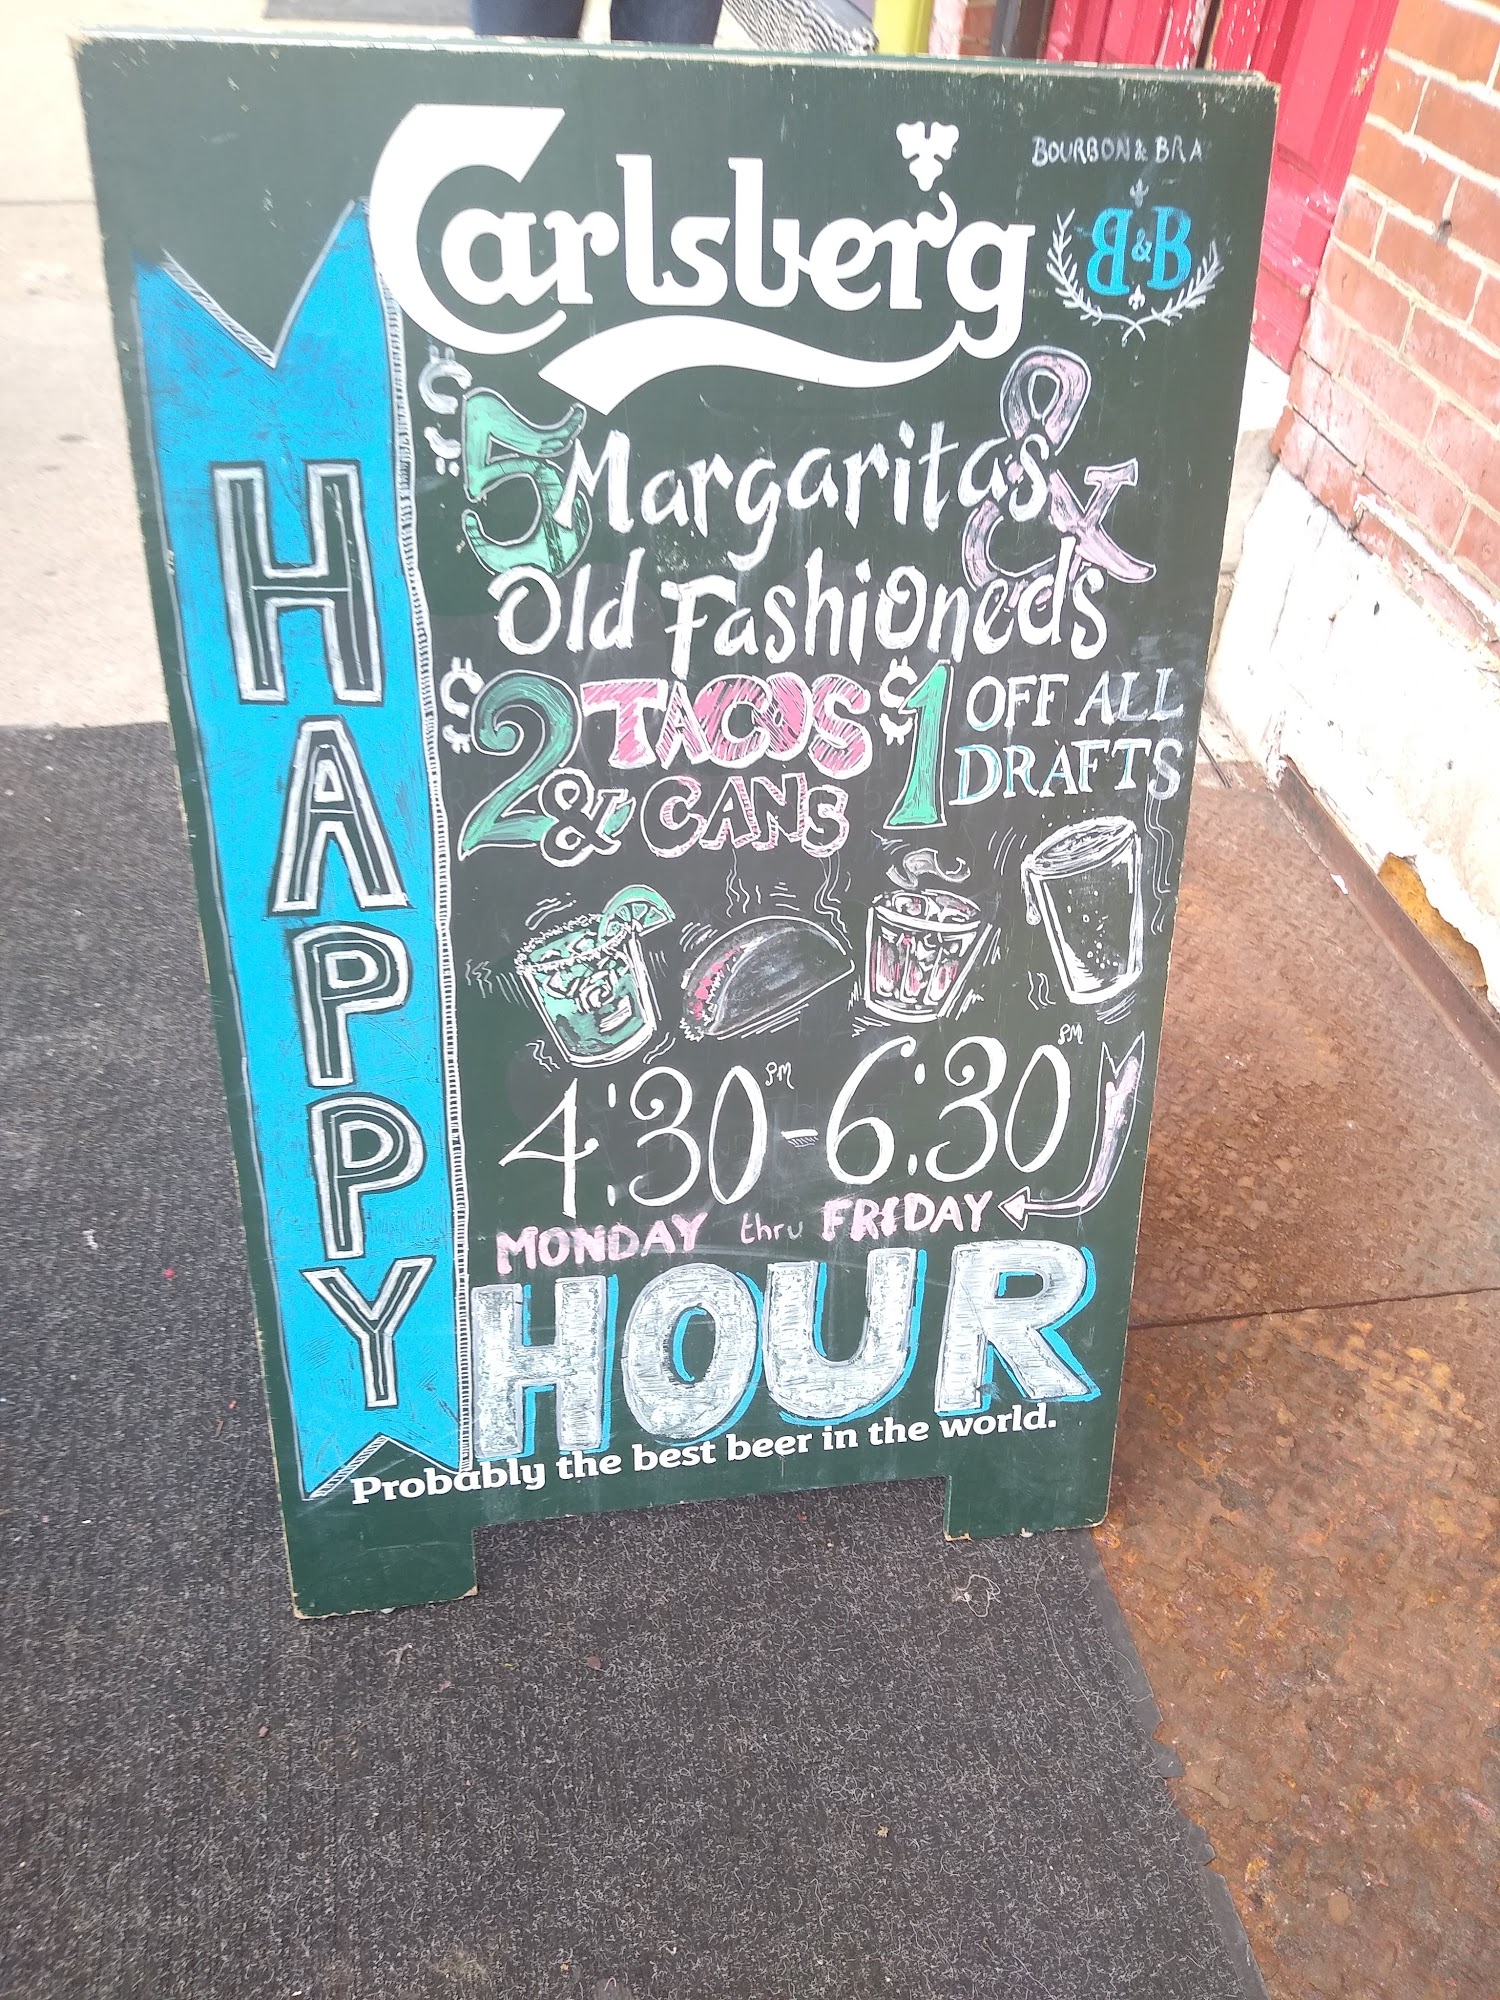 Carlsberg
BOURBON & BRA
B&B
HAPPY
$5 Margaritas &
Old Fashioneds
$2 TACOS
& CANS
$1 OFF ALL
DRAFTS
4:30PM-6:30PM
MONDAY thru FRIDAY
HOUR
Probably the best beer in the world.